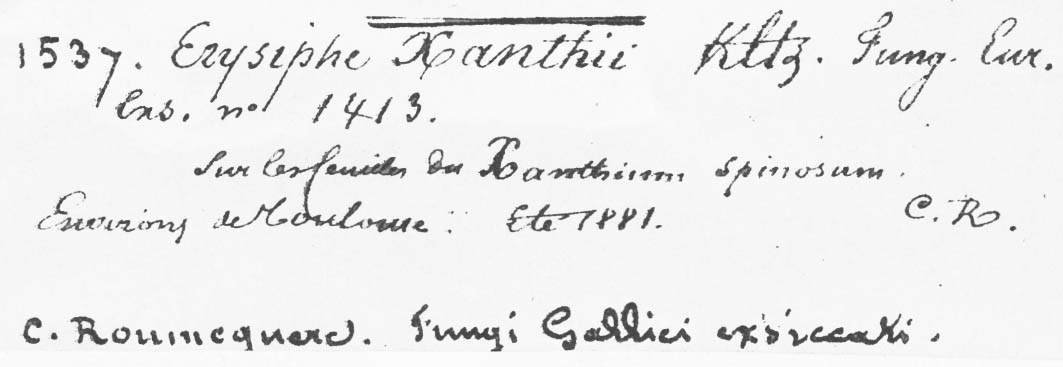 1537. Erysiphe Xanthii Kltz. Fung. Eur.
Exs. no 1413.
Sur les feuilles du Xanthium spinosum.
Environs de Toulouse. Eté 1881. C. R.
C. Roumeguere. Fungi Gallici exsiccati.